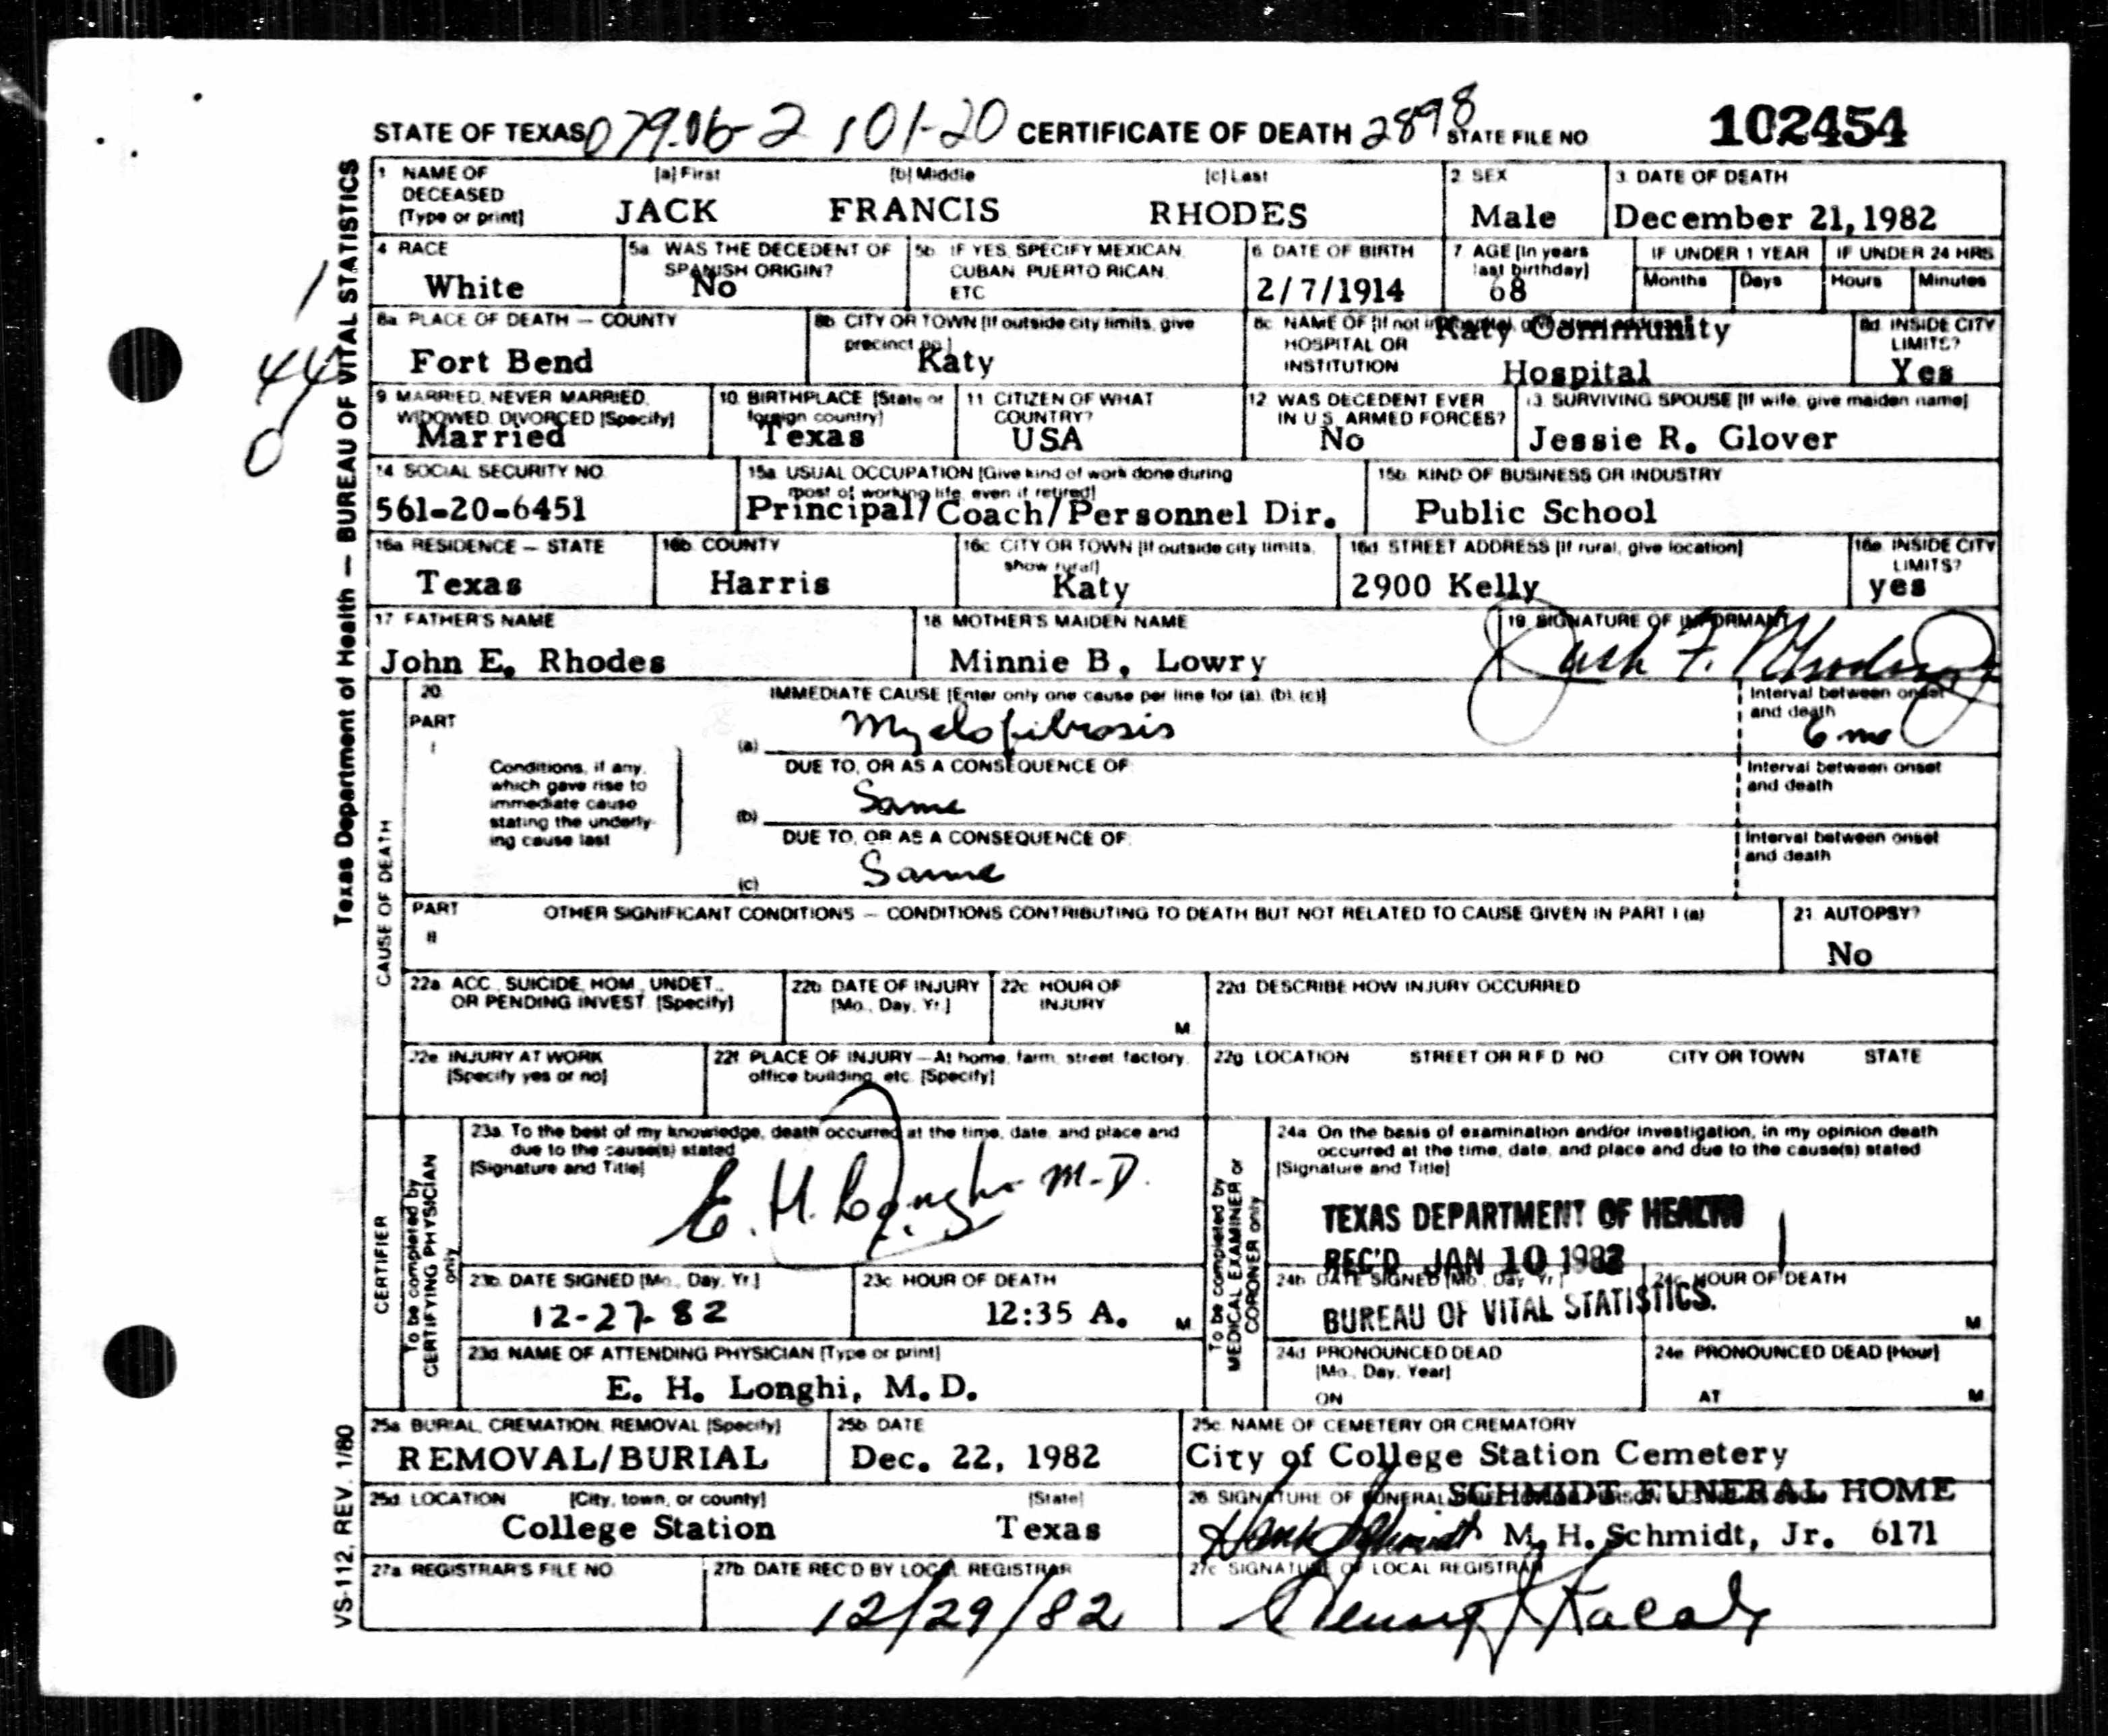 STATE OF TEXAS 079.06-2 101-20 CERTIFICATE OF DEATH 2898 STATE FILE NO 102454
Texas Department of Health — BUREAU OF VITAL STATISTICS
1 NAME OF DECEASED [Type or print] [a] First [b] Middle [c] Last
JACK FRANCIS RHODES
2 SEX
Male
3 DATE OF DEATH
December 21, 1982
4 RACE
White
5a WAS THE DECEDENT OF SPANISH ORIGIN?
No
5b IF YES, SPECIFY MEXICAN, CUBAN, PUERTO RICAN, ETC
6 DATE OF BIRTH
2/7/1914
7 AGE [In years last birthday]
68
IF UNDER 1 YEAR
Months Days
IF UNDER 24 HRS
Hours Minutes
8a PLACE OF DEATH — COUNTY
Fort Bend
8b CITY OR TOWN [If outside city limits, give precinct no.]
Katy
8c NAME OF [If not in
HOSPITAL OR INSTITUTION
Katy Community
Hospital
8d INSIDE CITY LIMITS?
Yes
9 MARRIED, NEVER MARRIED, WIDOWED, DIVORCED [Specify]
Married
10 BIRTHPLACE [State or foreign country]
Texas
11 CITIZEN OF WHAT COUNTRY?
USA
12 WAS DECEDENT EVER IN U.S. ARMED FORCES?
No
13 SURVIVING SPOUSE [If wife, give maiden name]
Jessie R. Glover
14 SOCIAL SECURITY NO.
561-20-6451
15a USUAL OCCUPATION [Give kind of work done during most of working life, even if retired]
Principal/Coach/Personnel Dir.
15b KIND OF BUSINESS OR INDUSTRY
Public School
16a RESIDENCE — STATE
Texas
16b COUNTY
Harris
16c CITY OR TOWN [If outside city limits, show rural]
Katy
16d STREET ADDRESS [If rural, give location]
2900 Kelly
16e INSIDE CITY LIMITS?
yes
17 FATHER'S NAME
John E. Rhodes
18 MOTHER'S MAIDEN NAME
Minnie B. Lowry
19 SIGNATURE OF INFORMANT
Jack F. Rhodes
CAUSE OF DEATH
20 PART I
IMMEDIATE CAUSE [Enter only one cause per line for (a), (b), (c)]
(a) Myelofibrosis
Interval between onset and death
6 mo
Conditions, if any, which gave rise to immediate cause stating the underlying cause last
DUE TO, OR AS A CONSEQUENCE OF
(b) Same
Interval between onset and death
DUE TO, OR AS A CONSEQUENCE OF:
(c) Same
Interval between onset and death
PART II
OTHER SIGNIFICANT CONDITIONS — CONDITIONS CONTRIBUTING TO DEATH BUT NOT RELATED TO CAUSE GIVEN IN PART I (a)
21 AUTOPSY?
No
22a ACC., SUICIDE, HOM., UNDET., OR PENDING INVEST. [Specify]
22b DATE OF INJURY [Mo., Day, Yr.]
22c HOUR OF INJURY
M
22d DESCRIBE HOW INJURY OCCURRED
22e INJURY AT WORK [Specify yes or no]
22f PLACE OF INJURY—At home, farm, street factory, office building, etc. [Specify]
22g LOCATION STREET OR R F D NO CITY OR TOWN STATE
CERTIFIER
To be completed by CERTIFYING PHYSICIAN only
23a To the best of my knowledge, death occurred at the time, date, and place and due to the cause(s) stated
[Signature and Title]
E. H. Longhi M.D.
23b DATE SIGNED [Mo., Day, Yr.]
12-27-82
23c HOUR OF DEATH
12:35 A. M
23d NAME OF ATTENDING PHYSICIAN [Type or print]
E. H. Longhi, M.D.
To be completed by MEDICAL EXAMINER or CORONER only
24a On the basis of examination and/or investigation, in my opinion death occurred at the time, date, and place and due to the cause(s) stated
[Signature and Title]
TEXAS DEPARTMENT OF HEALTH
REC'D JAN 10 1983
BUREAU OF VITAL STATISTICS.
24b DATE SIGNED [Mo., Day, Yr.]
24c HOUR OF DEATH
M
24d PRONOUNCED DEAD [Mo., Day, Year]
ON
24e PRONOUNCED DEAD [Hour]
AT M
25a BURIAL, CREMATION, REMOVAL [Specify]
REMOVAL/BURIAL
25b DATE
Dec. 22, 1982
25c NAME OF CEMETERY OR CREMATORY
City of College Station Cemetery
25d LOCATION [City, town, or county] [State]
College Station Texas
26 SIGNATURE OF FUNERAL
SCHMIDT FUNERAL HOME
Hank Schmidt M. H. Schmidt, Jr. 6171
27a REGISTRAR'S FILE NO.
27b DATE REC'D BY LOCAL REGISTRAR
12/29/82
27c SIGNATURE OF LOCAL REGISTRAR
VS-112, REV. 1/80